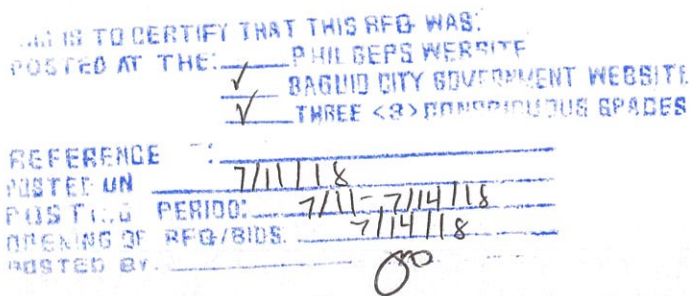 THIS IS TO CERTIFY THAT THIS RFQ WAS:
POSTED AT THE: ____ PHILGEPS WEBSITE
✓ BAGUIO CITY GOVERNMENT WEBSITE
✓ THREE <3> CONSPICUOUS SPACES
REFERENCE :
POSTED ON 7/11/18
POSTING PERIOD: 7/11 - 7/14/18
OPENING OF RFQ/BIDS. 7/14/18
POSTED BY.